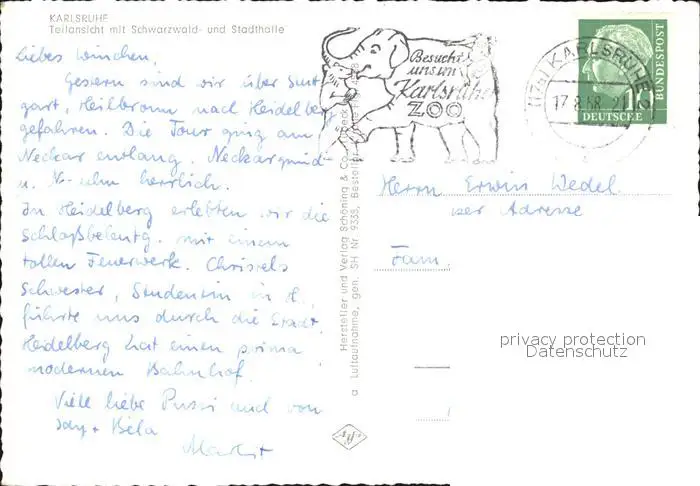 KARLSRUHE
Teilansicht mit Schwarzwald- und Stadthalle
Liebes
Gestern sind wir über Stutt
gart, Heilbronn nach Heidelberg
gefahren. Die Tour ging am
Neckar entlang. Neckargmünd
u. herrlich.
In Heidelberg erlebten wir die
Schloßbeleutg. mit einem
tollen Feuerwerk. Christels
Schwester, Studentin in H.,
führte uns durch die Stadt.
Heidelberg hat einen prima
modernen Bahnhof.
Viele liebe Bussi und von
Béla
Hersteller und Verlag Schöning & Co.
a Luftaufnahme, gen. SH Nr. 9335, Bestell
Besucht
uns im
Karlsruher
ZOO
KARLSRUHE
17.8.58
DEUTSCHE
BUNDESPOST
Herrn Erwin Wedel
Adresse
Fam.
privacy protection
Datenschutz